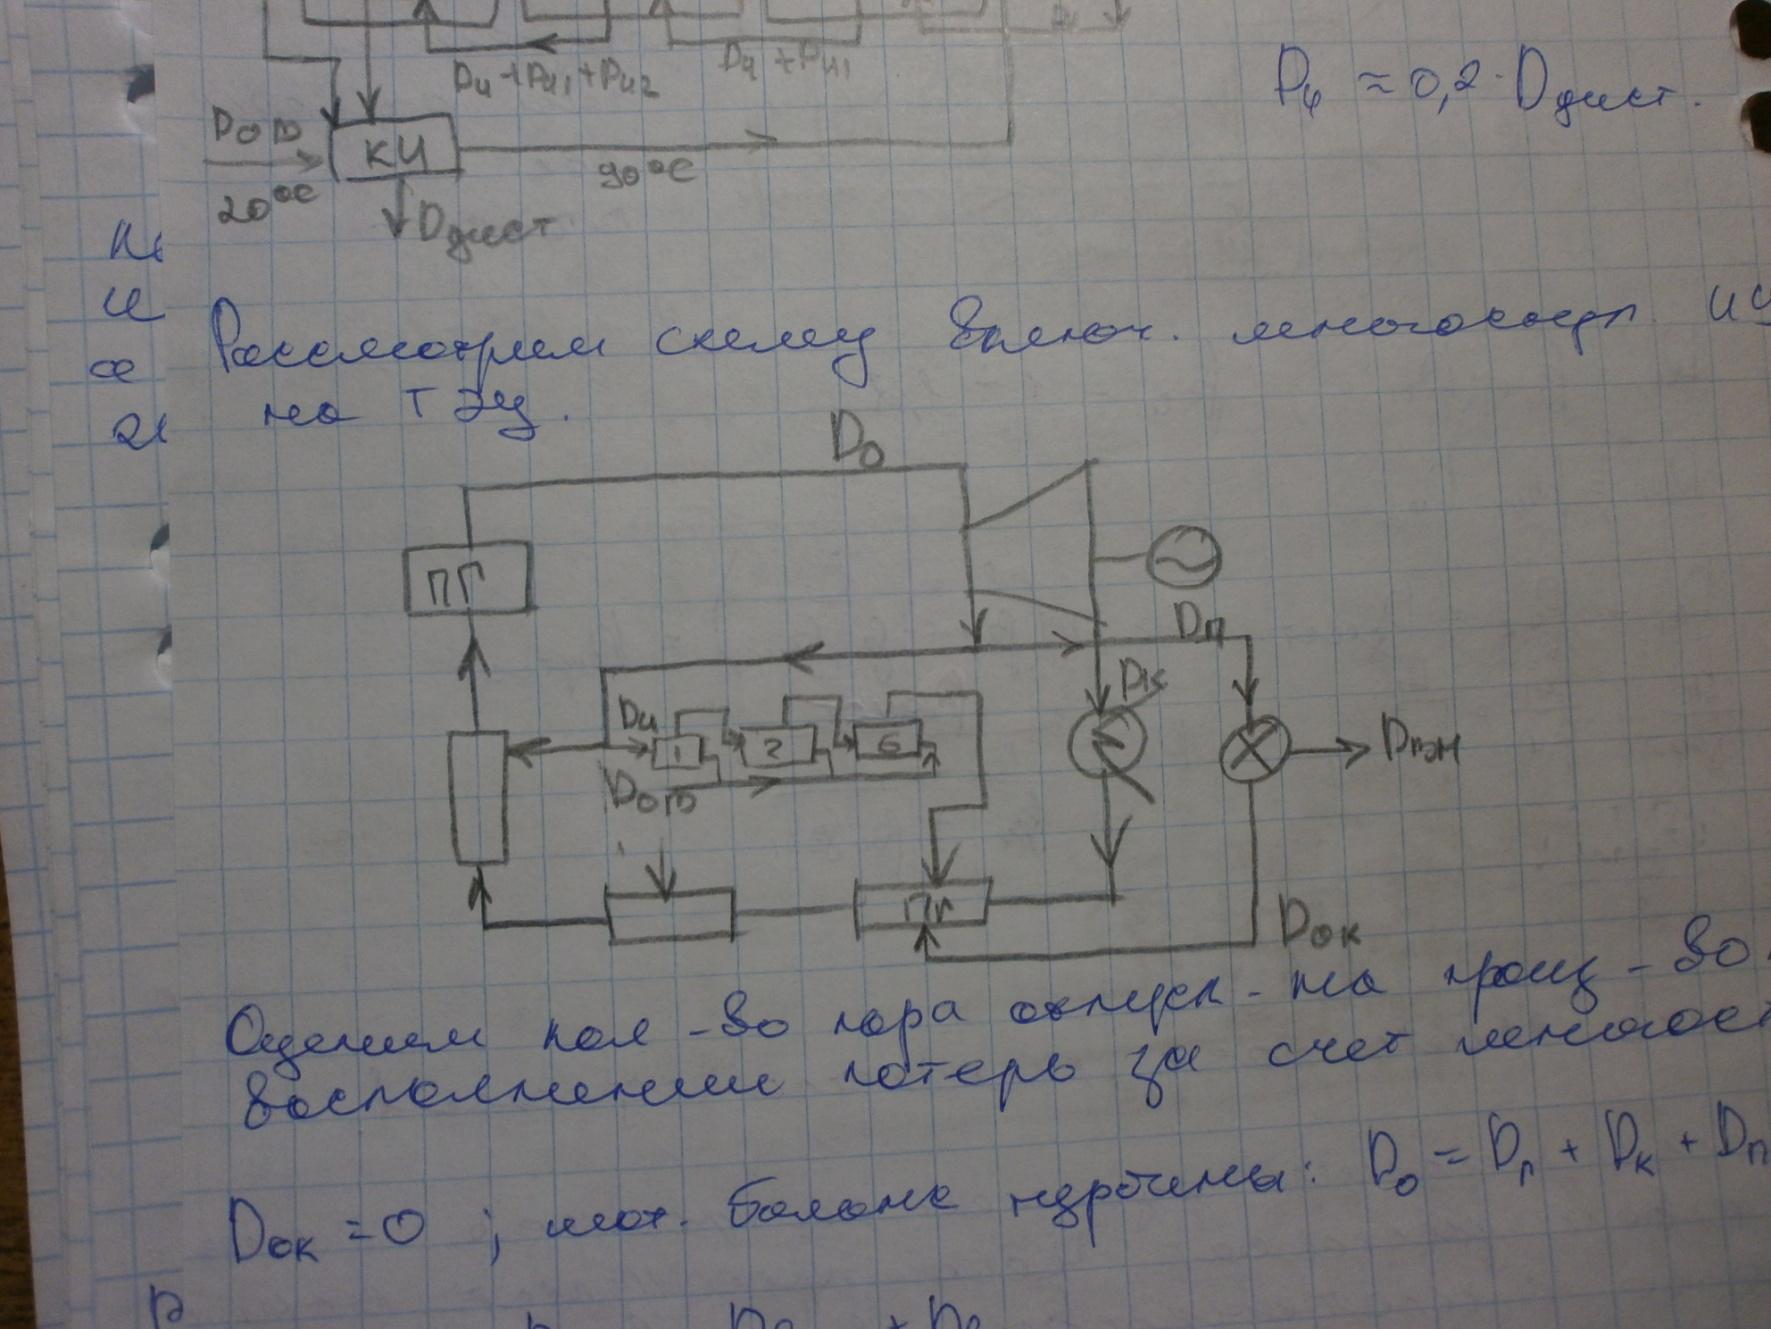 Dи+Dи1+Dи2
Dи+Dи1
Dи ≈ 0,2·Dдист.
Dов
20°C
КИ
90°C
Dдист
Рассмотрим схему включ. многоступ ИУ
на ТЭЦ.
D0
ПГ
Dп
Dк
Dи
1
2
6
Dпэн
Dов
ПГ
Dок
Оценим кол-во пара отпуск. на произ-во.
восполнении потерь за счет многост
Dок = 0 ; мат. баланс турбины: D0 = Dп + Dк + Dп